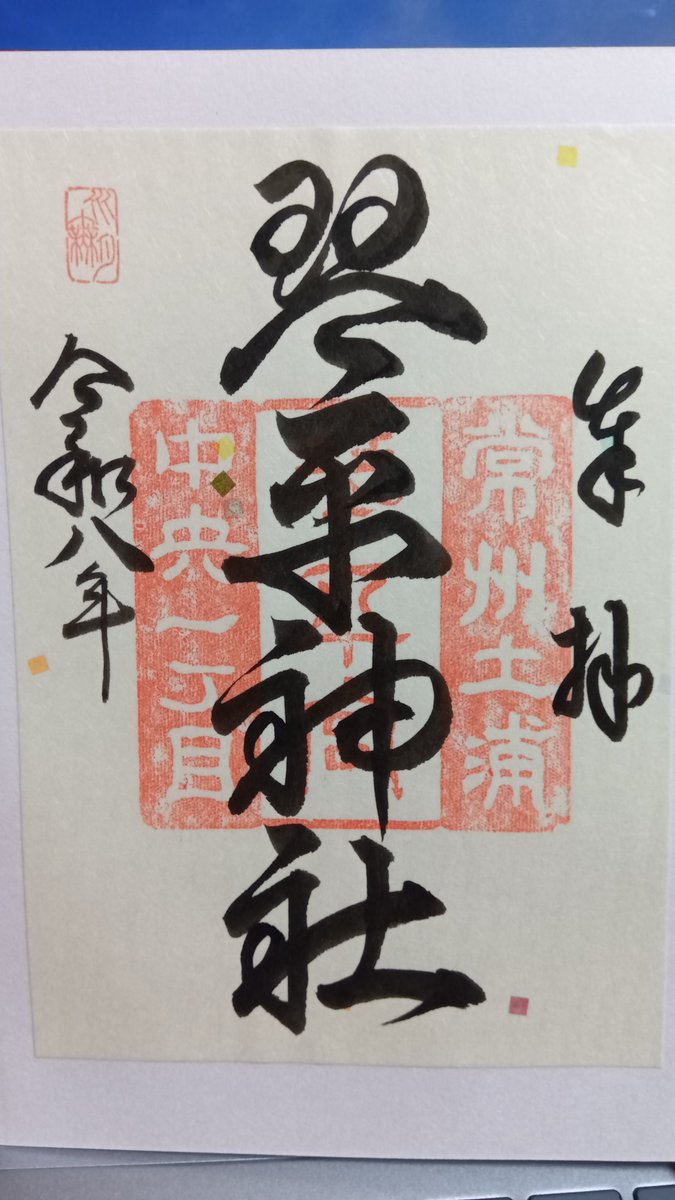 奉拝
常州土浦
琴平神社
中央一丁目
令和八年